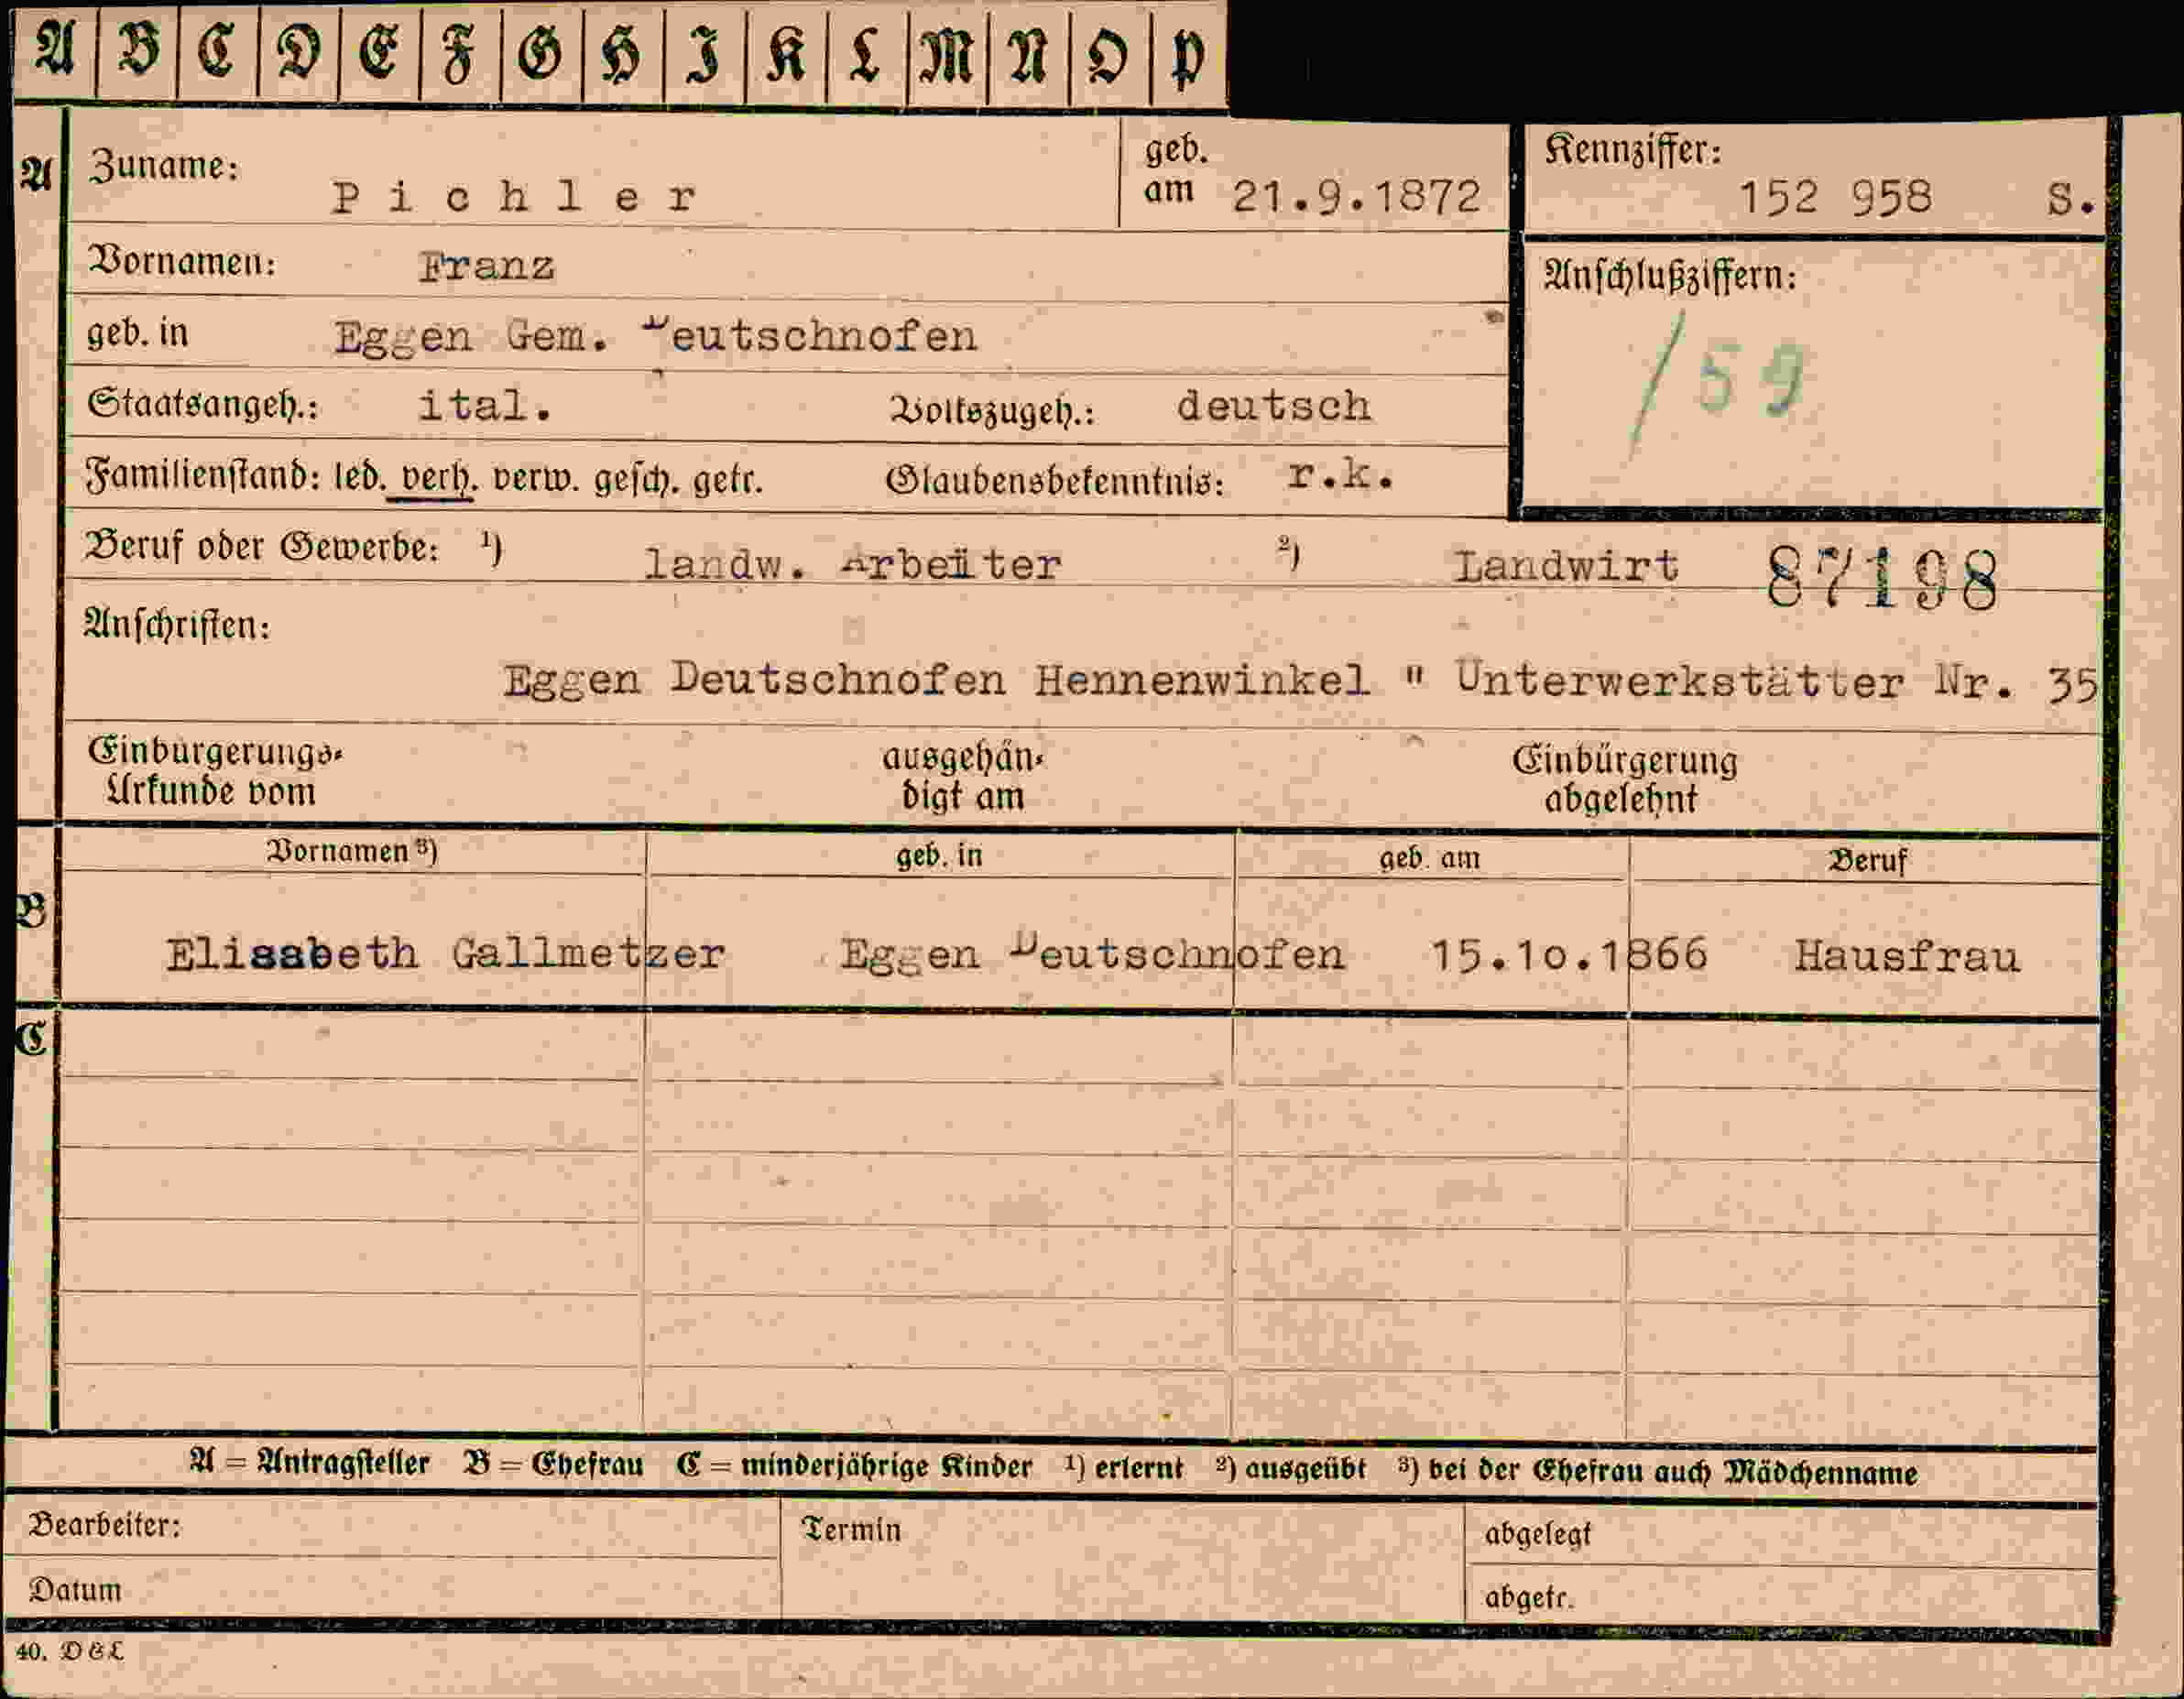 A B C D E F G H I K L M N O P
A Zuname: Pichler geb. am 21.9.1872 Kennziffer: 152 958 S.
Vornamen: Franz Anschlußziffern:
geb. in Eggen Gem. Deutschnofen / 59
Staatsangeh.: ital. Volkszugeh.: deutsch
Familienstand: led. verh. verw. gesch. getr. Glaubensbekenntnis: r.k.
Beruf oder Gewerbe: ¹) landw. Arbeiter ²) Landwirt 87198
Anschriften:
Eggen Deutschnofen Hennenwinkel " Unterwerkstätter Nr. 35
Einbürgerungs-Urkunde vom ausgehändigt am Einbürgerung abgelehnt
Vornamen ³) geb. in geb. am Beruf
B Elisabeth Gallmetzer Eggen Deutschnofen 15.10.1866 Hausfrau
C
A = Antragsteller B = Ehefrau C = minderjährige Kinder ¹) erlernt ²) ausgeübt ³) bei der Ehefrau auch Mädchenname
Bearbeiter: Termin abgelegt
Datum abgetr.
40. D&L